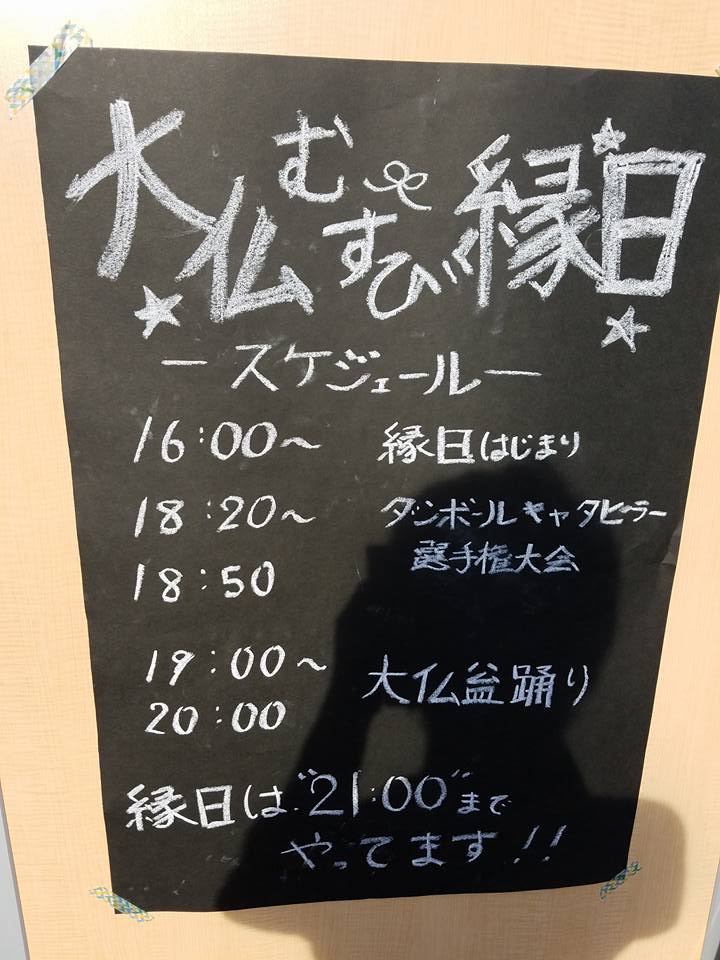 大仏むすび縁日
ースケジュールー
16:00~ 縁日はじまり
18:20~ ダンボールキャタピラー
18:50 選手権大会
19:00~ 大仏盆踊り
20:00
縁日は"21:00"まで
やってます!!